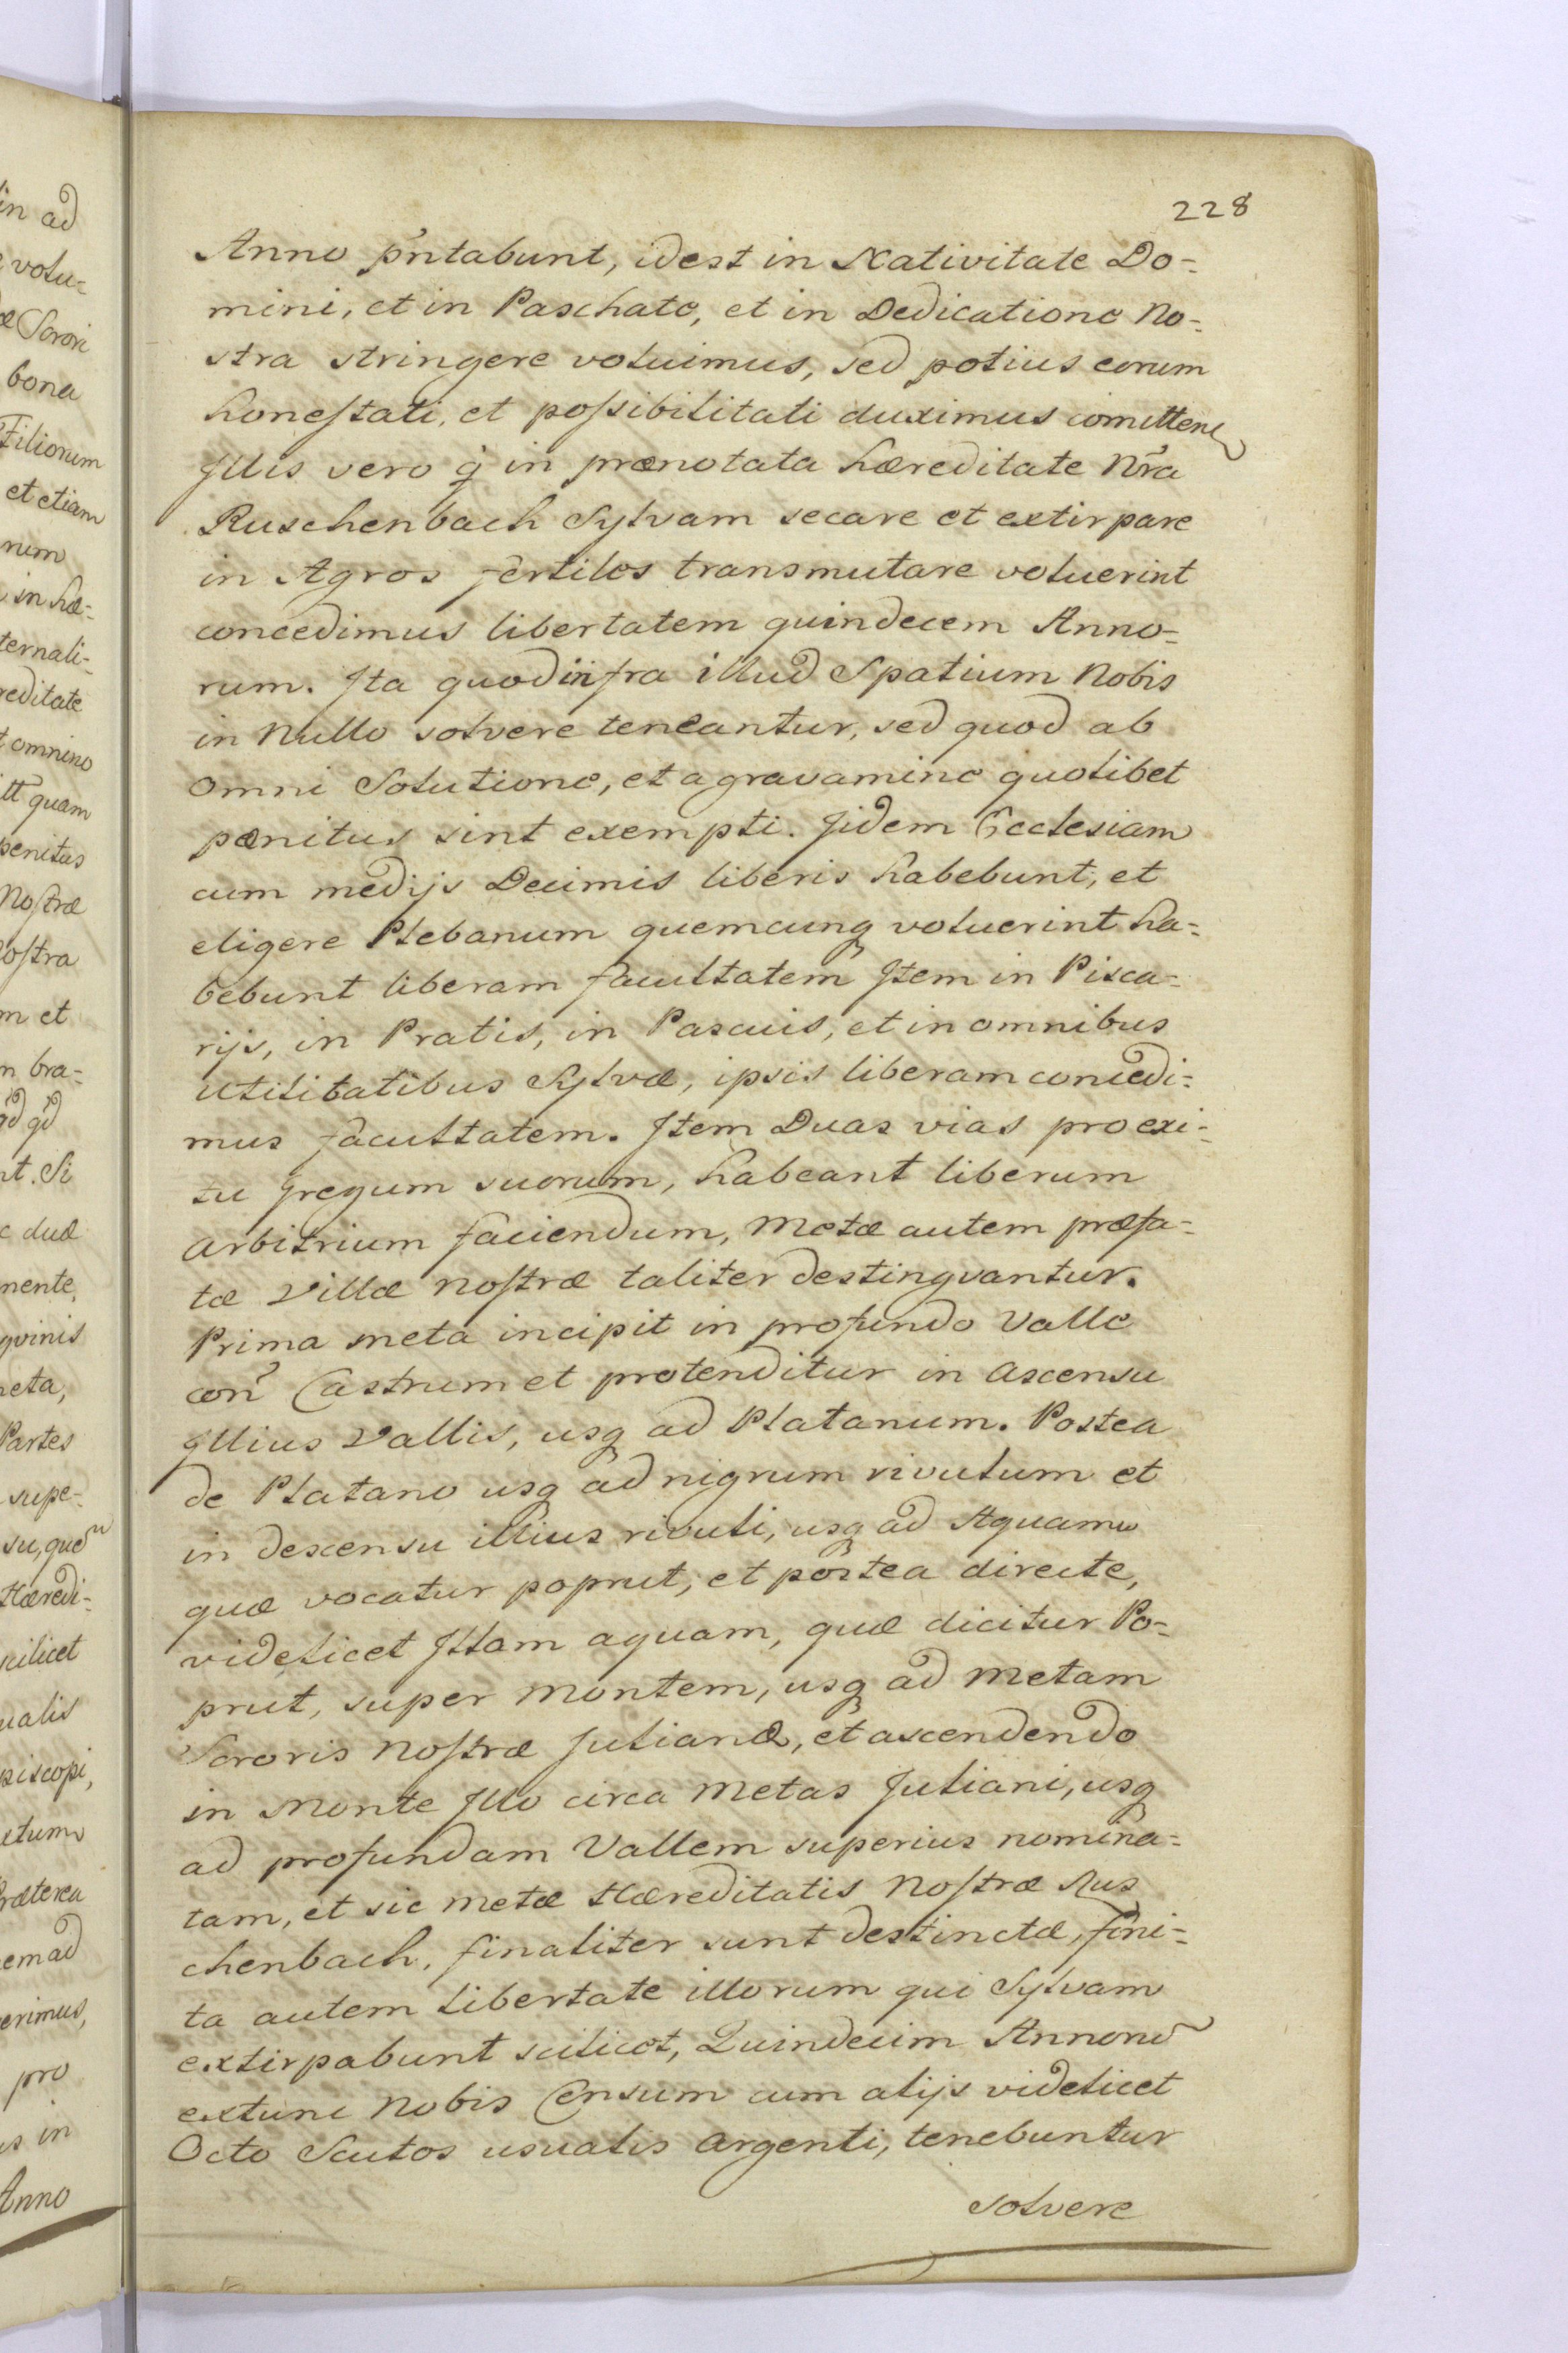 228
Anno p̃ntabunt, idest in Nativitate Do-
mini, et in Paschate, et in Dedicatione No-
stra stringere voluimus, sed potius eorum
honestati, et possibilitati duximus comittene
Illis vero q̃ in prænotata hæreditate Nr̃a
Ruschenbach Sylvam secare et extirpare
in Agros fertiles transmutare voluerint
concedimus libertatem quindecem Anno-
rum. Ita quod infra illud Spatium Nobis
in Nullo solvere teneantur, sed quod ab
omni Solutione, et agravamine quolibet
pænitus sint exempti. Iidem Ecclesiam
cum medijs Decimis liberis habebunt, et
eligere Plebanum quemcunq voluerint ha-
bebunt liberam facultatem Item in Pisca-
rijs, in Pratis, in Pascuis, et in omnibus
utilitatibus Sylvæ, ipsis liberam concedi-
mus facultatem. Item Duas vias pro exi-
tu gregum suorum, habeant liberum
arbitrium faciendum, Metæ autem præfa-
tæ Villæ nostræ taliter destingvantur.
Prima meta incipit in profundo Valle
con̄ Castrum et protenditur in ascensu
Illius Vallis, usq ad Platanum. Postea
de Platano usq ad nigrum rivulum et
in descensu illius rivuli, usq ad Aquam
quæ vocatur poprut, et postea directe,
videlicet Illam aquam, quæ dicitur Po-
prut, super montem, usq ad Metam
Sororis Nostræ Julianæ, et ascendendo
in Monte Illo circa Metas Juliani, usq
ad profundam Vallem superius nomina-
tam, et sic metæ Hæreditatis Nostræ Rus
chenbach, finaliter sunt destinctæ, fini-
ta autem Libertate illorum qui Sylvam
extirpabunt scilicet, Quindecim Annoru
extunc Nobis Censum cum alijs videlicet
Octo Scutos usualis argenti, tenebuntur
solvere
in ad
volu-
Sorori
bona
Filiorum
et etiam
rum
in hæ-
ternali-
reditate
omnino
tt quam
penitus
Nostræ
ostra
m et
n bra-
nt. Si
c duæ
mente,
gvinis
neta,
Partes
supe-
su, que
Hæredi-
cilicet
ualis
piscopi,
etum
ræterea
em ad
erimus,
pro
s in
Anno